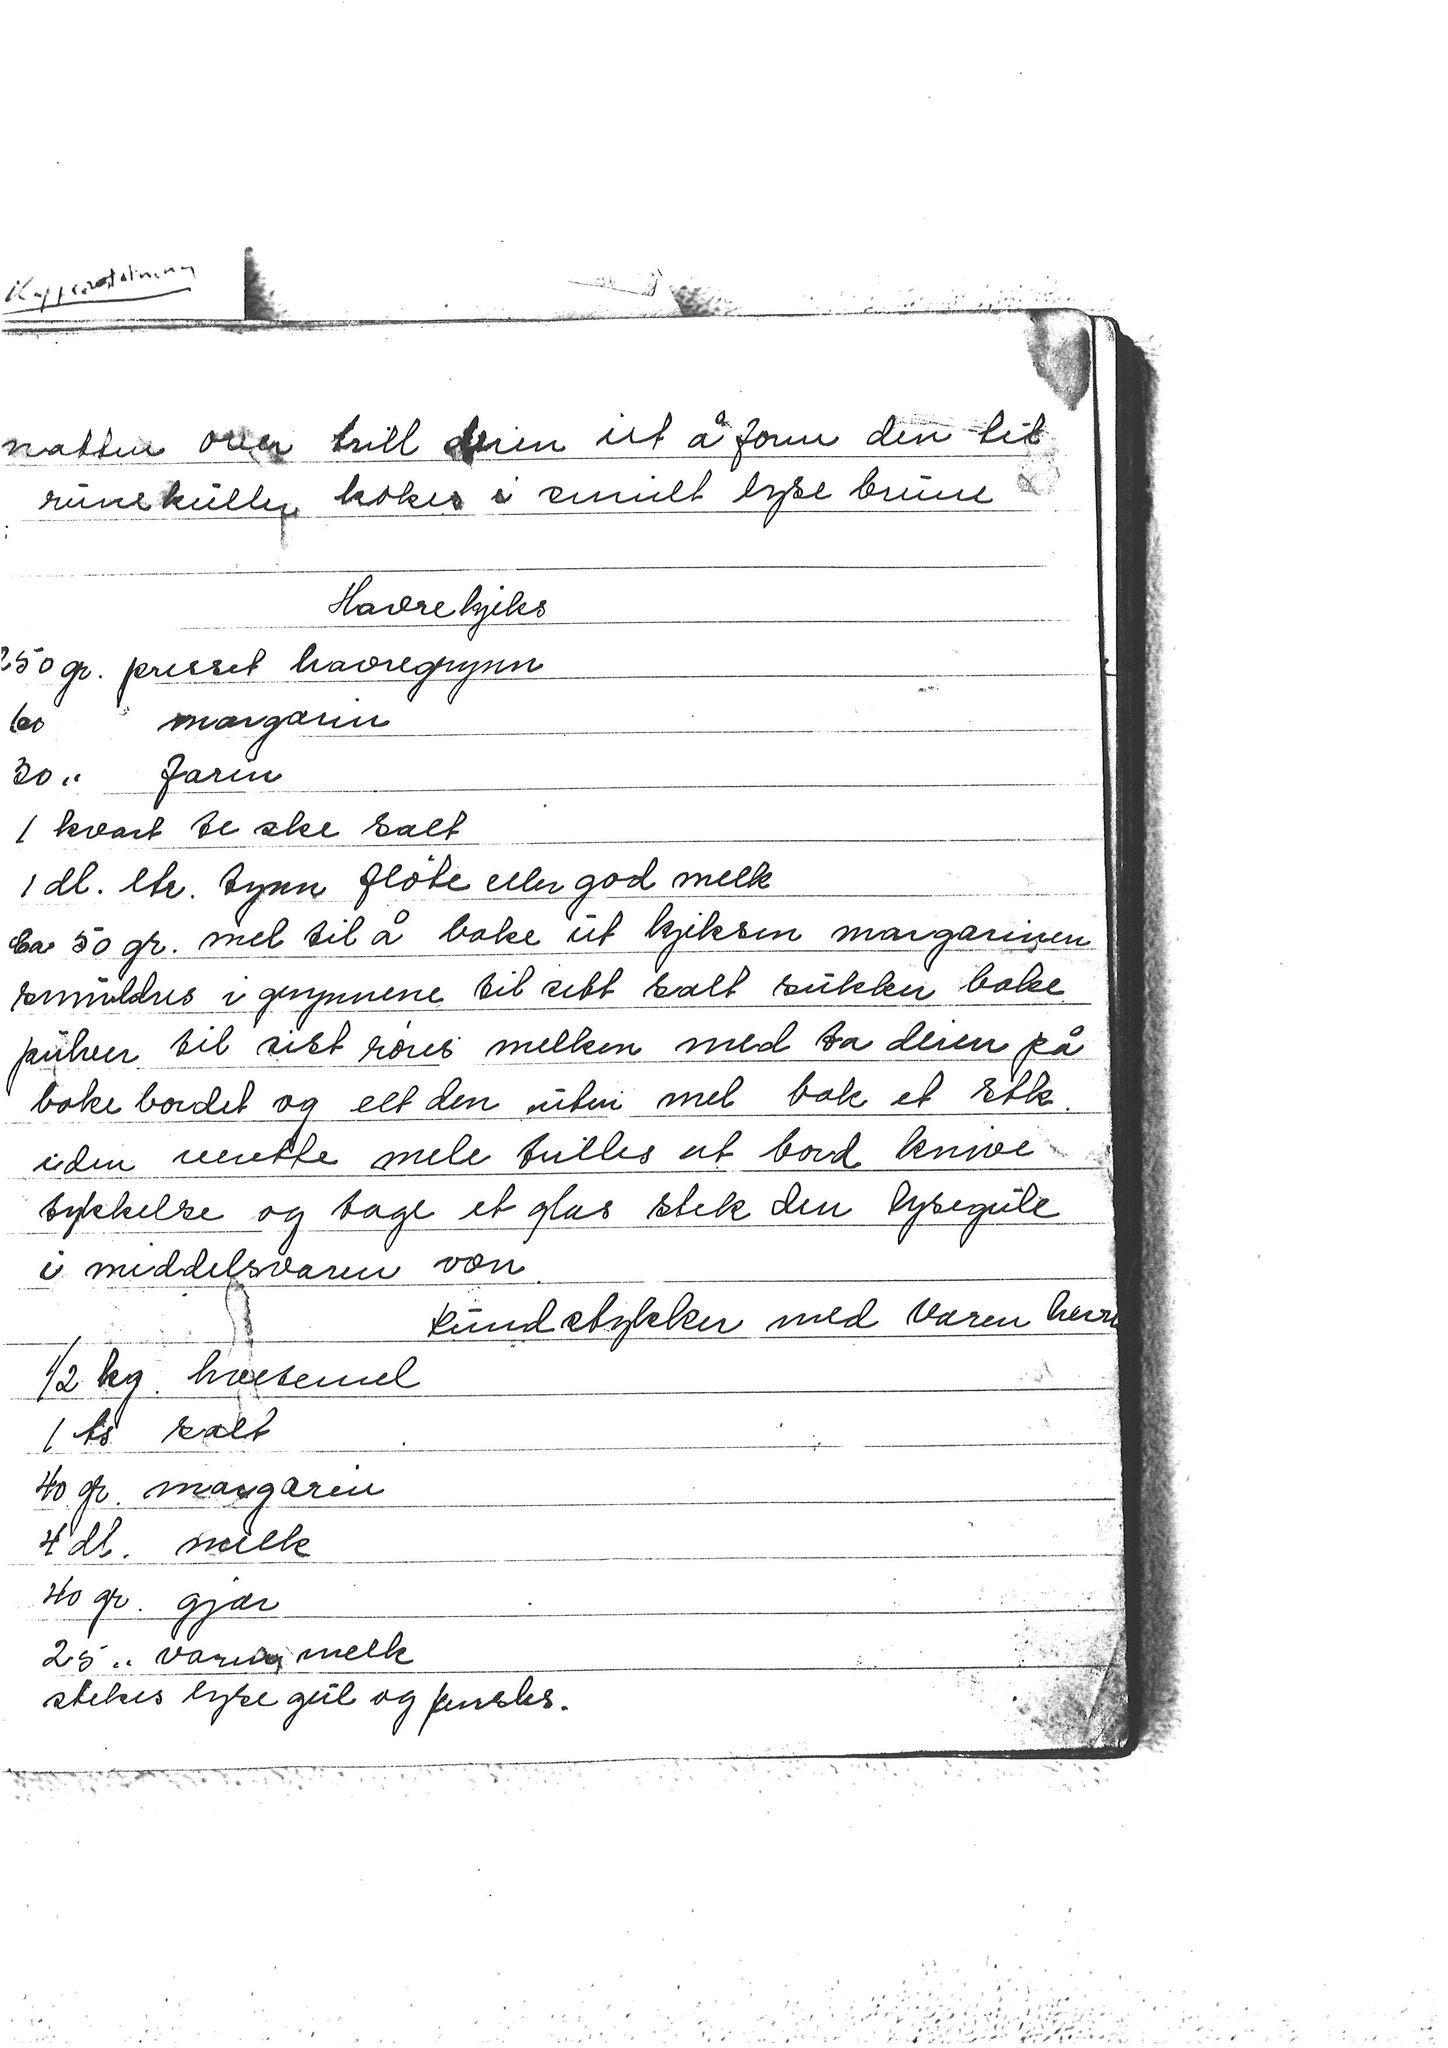 natten over trill deien ut å form den til
runekuller kokes i smult lyse brune
Havrekjeks
250 gr. presset havregrynn
60 " margarin
30 " farin
1 kvart te ske salt
1 dl. ltr. tynn fløte eller god melk
ca 50 gr. mel til å bake ut kjeksen margarinen
smuldres i grynnene til sett salt sukker bake
pulver til sist røres melken med ta deien på
bake bordet og elt den uten mel bak et stk.
i den mele trilles ut bord knive
tykkelse og tage et glas stek den lysegule
i middelsvaren ven
Rundstykker med varen
1/2 kg. hvetemel
1 ts salt
40 gr. margarin
4 dl. melk
40 gr. gjær
25 " melk
stekes lyse gul og pensles.